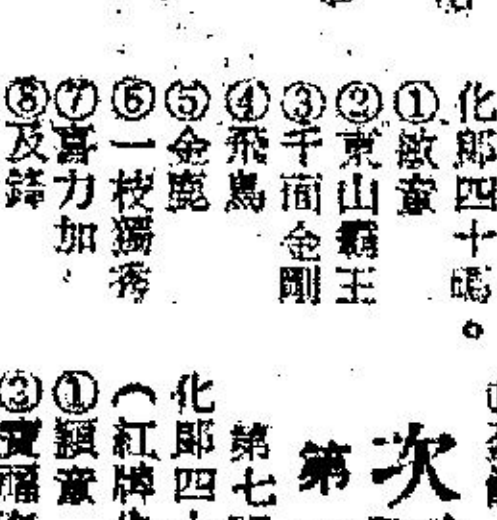 化郎四十碼。
①敏童
②東山霸王
③千面金剛
④飛馬
⑤金鹿
⑥一枝獨秀
⑦喜力加
⑧及鋒
次
第
第七
化郎四
（紅牌
①穎童
②寶福